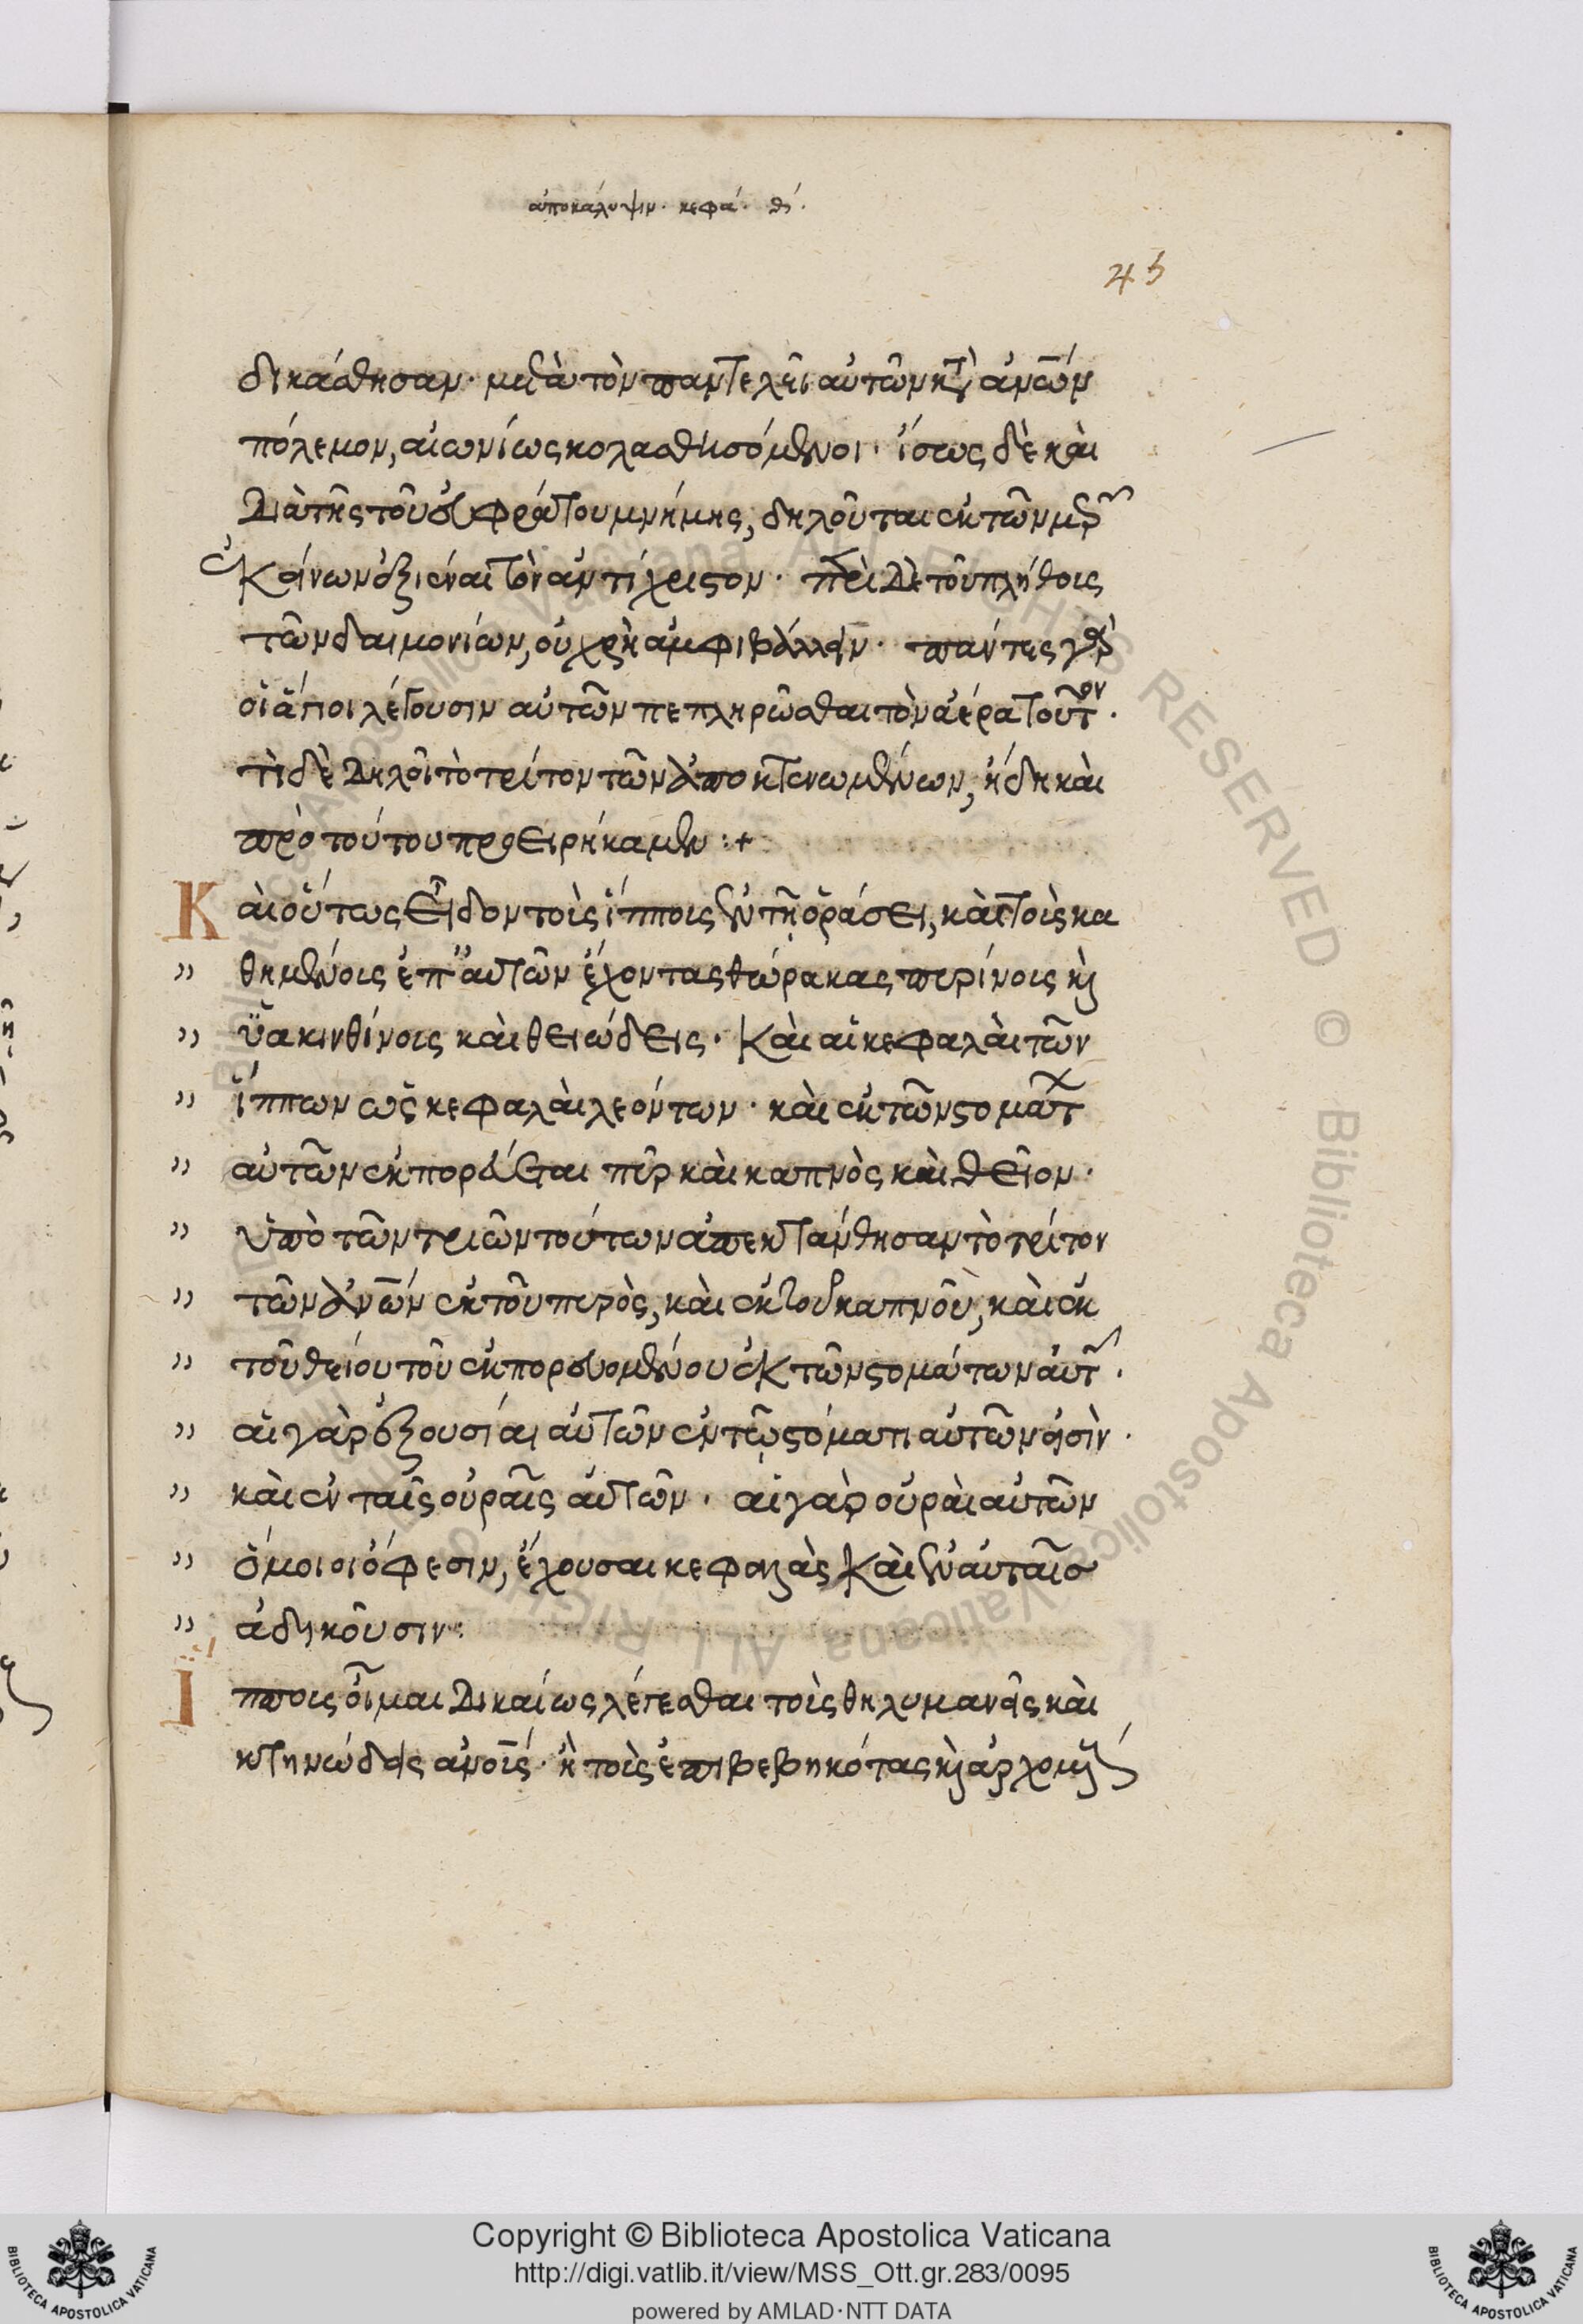 ἀποκάλυψιν. κεφά. θ.
45
δικάσθησαν. μετὰ τὸν παντελῆ αὐτῶν κτ ἀνων
πόλεμον, αἰωνίως κολασθησόμενοι. ἴσως δὲ καὶ
διὰ τῆς τοῦ εὐφράτου μνήμης, δηλοῦται ἐκ τῶν μερ
ἐκείνων ἐξιέναι τὸν ἀντίχριστον. περὶ δὲ τοῦ πλήθους
τῶν δαιμονίων, οὐ χρὴ ἀμφιβάλλειν. πάντες γὰρ
οἱ ἅγιοι λέγουσιν αὐτῶν πεπληρῶσθαι τὸν ἀέρα τοῦτον.
τί δὲ δηλοῖ τὸ τρίτον τῶν ἀποκτενωμένων, ἤδη καὶ
πρὸ τούτου προειρήκαμεν :+
Καὶ οὕτως εἶδον τοὺς ἵππους ἐν τῇ ὁράσει, καὶ τοὺς κα
" θημένους ἐπ' αὐτῶν ἔχοντας θώρακας πυρίνους κὶ
" ὑακινθίνους καὶ θειώδεις. καὶ αἱ κεφαλαὶ τῶν
" ἵππων ὡς κεφαλαὶ λεόντων. καὶ ἐκ τῶν στοματ
" αὐτῶν ἐκπορεύεται πῦρ καὶ καπνὸς καὶ θεῖον.
" ὑπὸ τῶν τριῶν τούτων ἀπεκτάνθησαν τὸ τρίτον
" τῶν ἀνων ἐκ τοῦ πυρὸς, καὶ ἐκ τοῦ καπνοῦ, καὶ ἐκ
" τοῦ θείου τοῦ ἐκπορευομένου ἐκ τῶν στομάτων αὐτ.
" αἱ γὰρ ἐξουσίαι αὐτῶν ἐν τῷ στόματι αὐτῶν εἰσὶν.
" καὶ ἐν ταῖς οὐραῖς αὐτῶν. αἱ γὰρ οὐραὶ αὐτῶν
" ὅμοιοι ὄφεσιν, ἔχουσαι κεφαλὰς καὶ ἐν αὐταῖς
" ἀδικοῦσιν:
Ἵππους οἶμαι δικαίως λέγεσθαι τοὺς θηλυμανεῖς καὶ
κτηνώδεις ἀνους. ἢ τοὺς ἐπιβεβηκότας κὶ ἄρχοντας
Copyright © Biblioteca Apostolica Vaticana
http://digi.vatlib.it/view/MSS_Ott.gr.283/0095
powered by AMLAD·NTT DATA